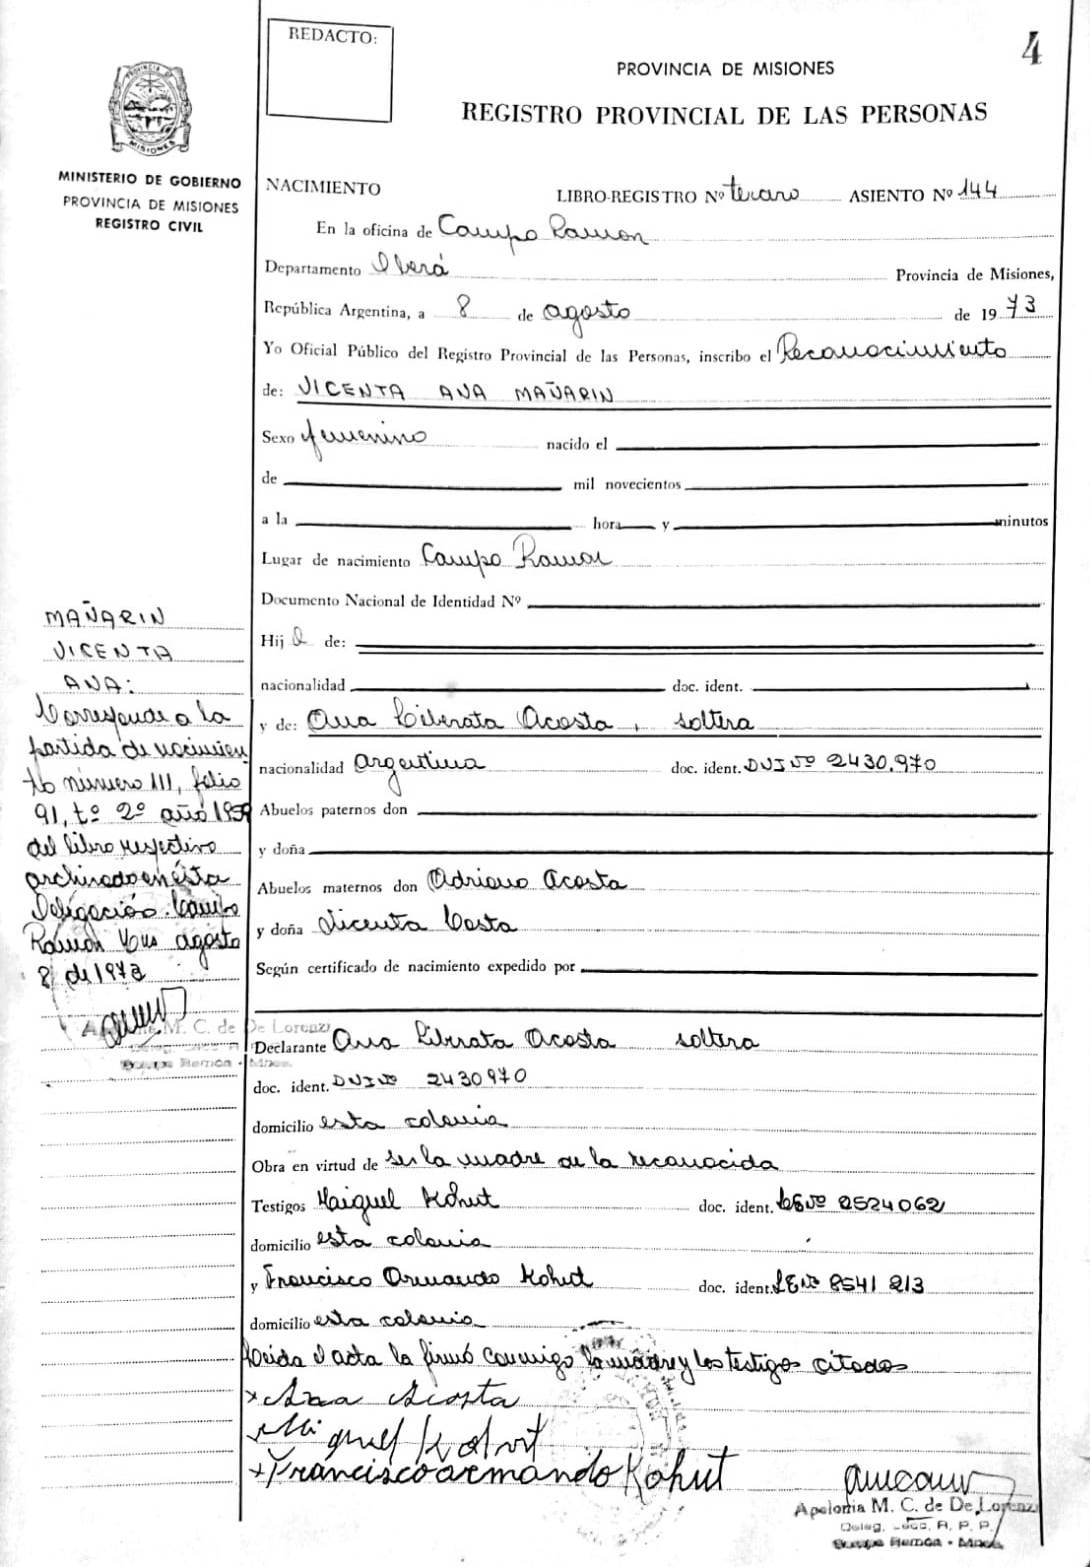 REDACTO:
4
PROVINCIA DE MISIONES
REGISTRO PROVINCIAL DE LAS PERSONAS
PROVINCIA DE
MISIONES
MINISTERIO DE GOBIERNO
PROVINCIA DE MISIONES
REGISTRO CIVIL
NACIMIENTO LIBRO-REGISTRO Nº tercero ASIENTO Nº 144
En la oficina de Campo Ramon
Departamento Oberá Provincia de Misiones,
República Argentina, a 8 de agosto de 1973
Yo Oficial Público del Registro Provincial de las Personas, inscribo el Reconocimiento
de: VICENTA ANA MAÑARIN
Sexo femenino nacido el
de mil novecientos
a la hora y minutos
Lugar de nacimiento Campo Ramon
Documento Nacional de Identidad Nº
Hij a de:
nacionalidad doc. ident.
y de: Ana Liberata Acosta, soltera
nacionalidad argentina doc. ident. DNI Nº 2430.970
Abuelos paternos don
y doña
Abuelos maternos don Adriano Acosta
y doña Vicenta Costa
Según certificado de nacimiento expedido por
Declarante Ana Librata Acosta soltera
doc. ident. DNI Nº 2430970
domicilio esta colonia
Obra en virtud de ser la madre de la reconocida
Testigos Maiguel Kohut doc. ident. Nº 2524062
domicilio esta colonia
y Francisco Armando Kohut doc. ident. LE Nº 8541213
domicilio esta colonia
Leida el acta la firmó conmigo la madre y los testigos citados
x Ana Acosta
x Miguel Kohut
x Francisco armando Kohut
Apelonia M. C. de De Lorenzi
Deleg. R. P. P.
MAÑARIN
VICENTA
ANA:
Corresponde a la
partida de nacimien
to número 111, folio
91, tº 2º año 1959
del libro respectivo
archivado en ésta
Delegación. Campo
Ramón agosto
8 de 1973
M. C. de De Lorenzi